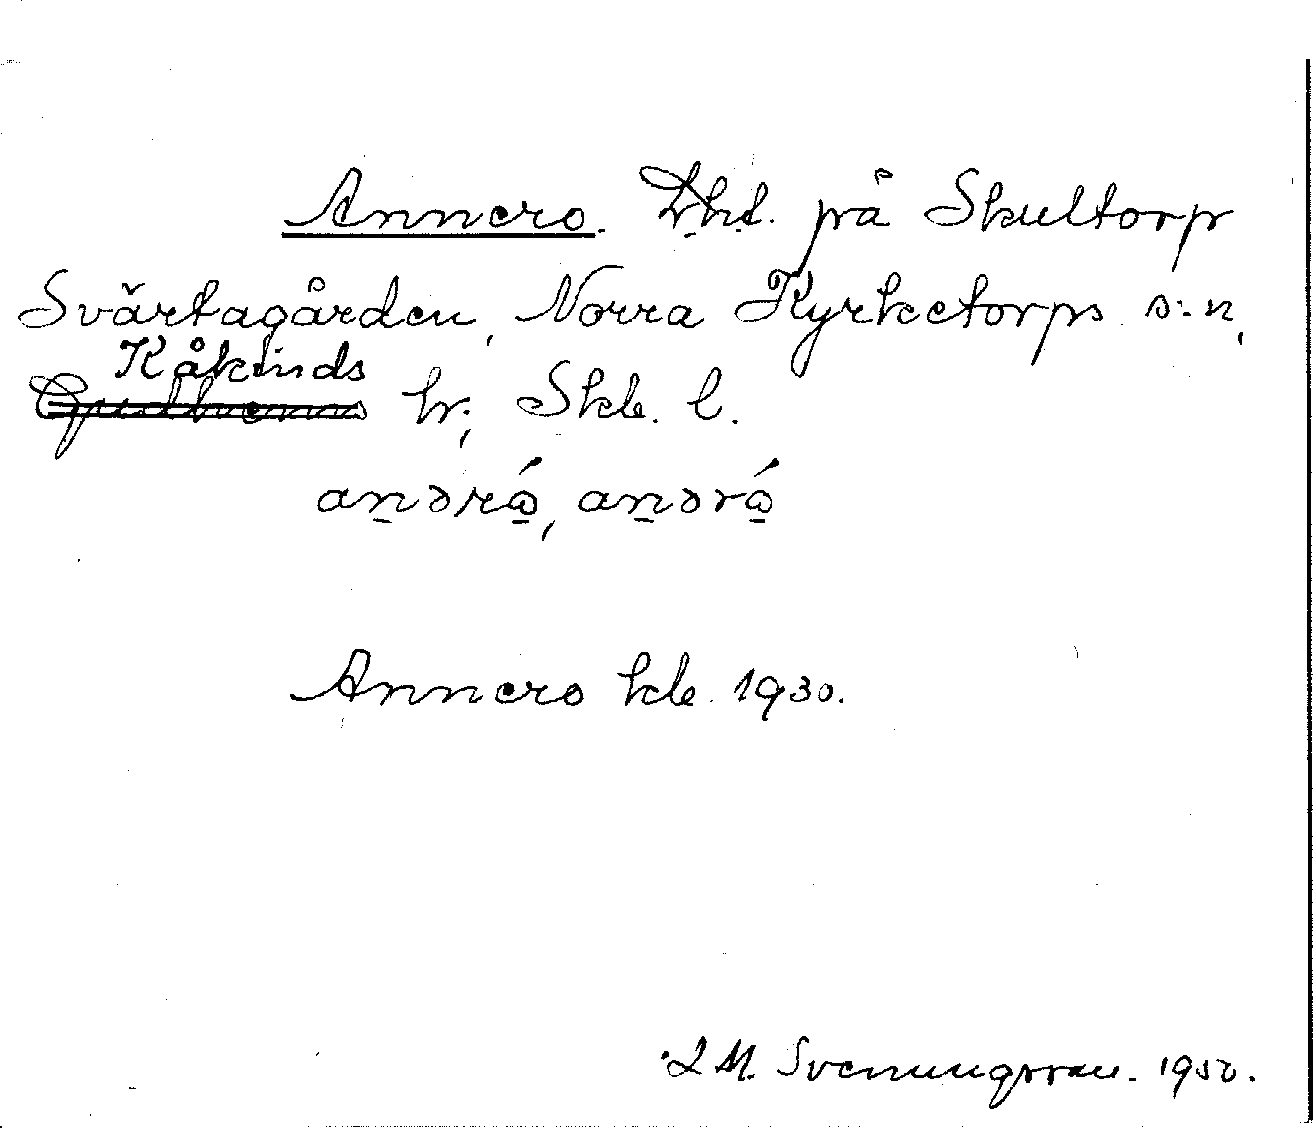 Annero. Lht. på Skultorp
Svärtagården, Norra Kyrketorps s:n,
Kåkinds
Gudhems hr; Skb. l.
anəró, anəró
Annero kb. 1930.
L M. Svenungsson. 1950.